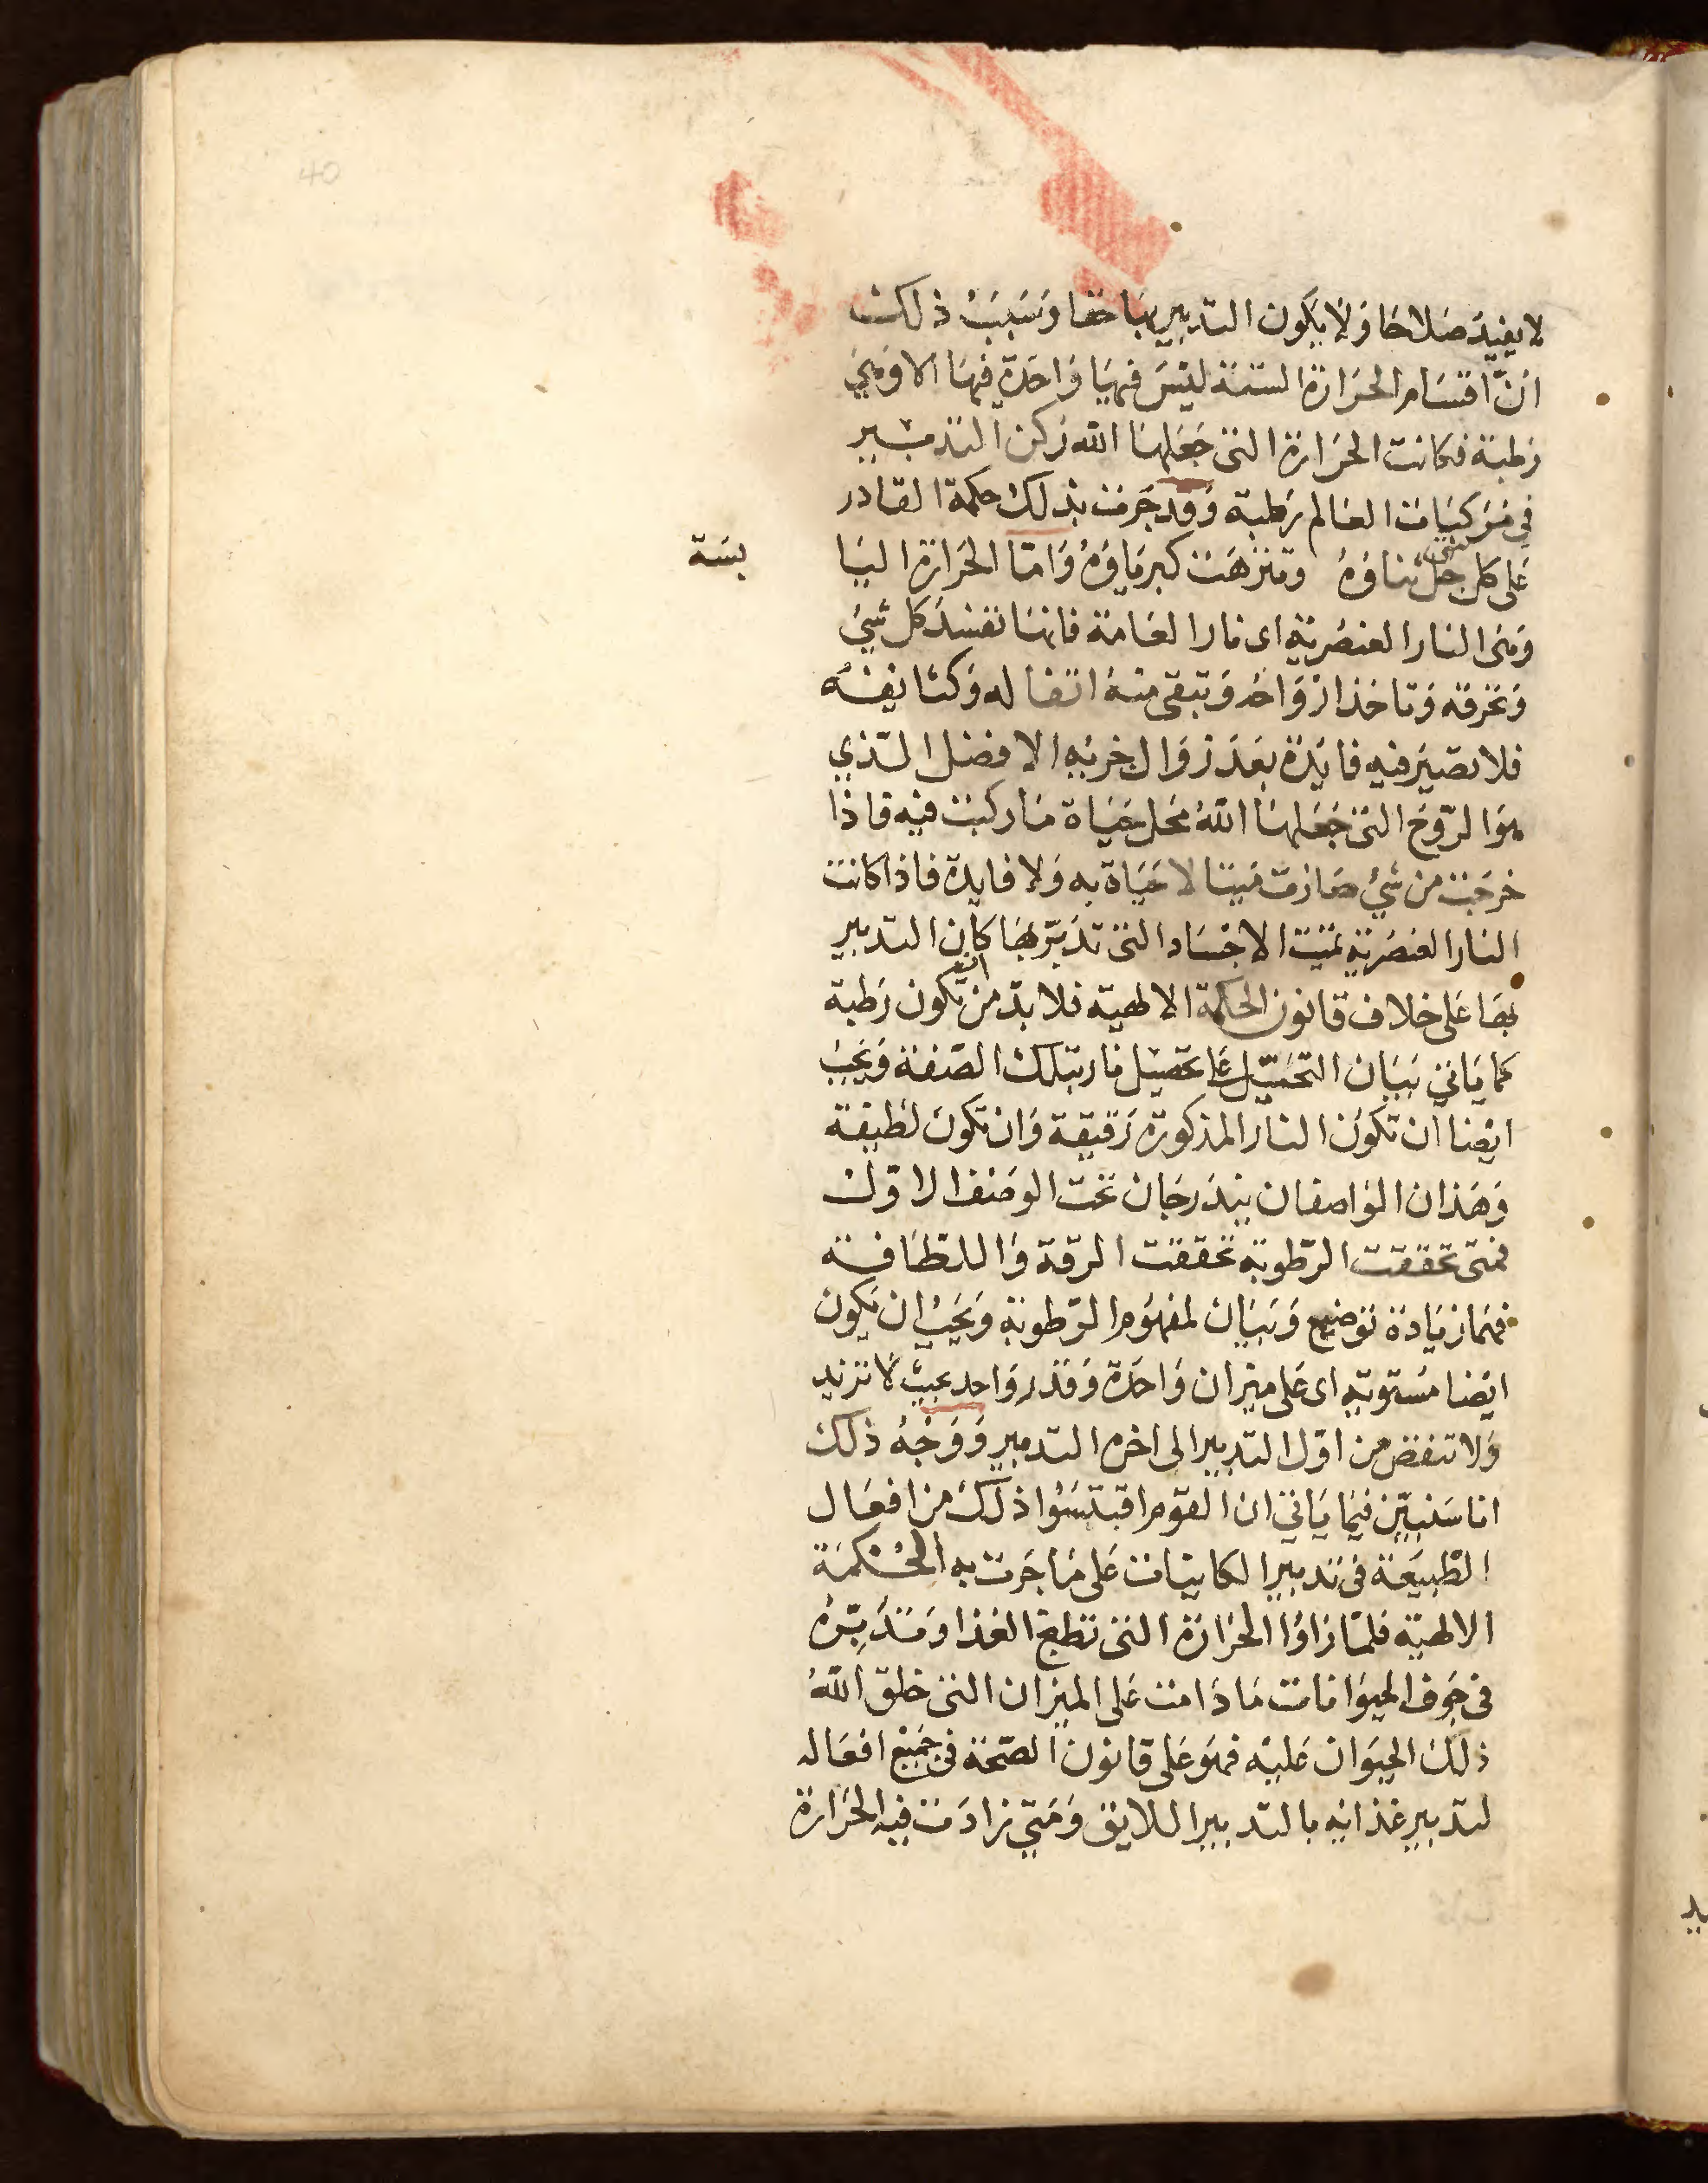 لا يفيد صلاحا ولا يكون التدبير بها حقا وسبب ذلك
ان اقسام الحرارة الستة ليس فيها واحدة فيها الا وهي
رطبة فكانت الحرارة التي جعلها الله ركن التدبير
في مركبات العالم رطبة وقد جرت بذلك حكمة القادر
على كل شي جل ثناؤه وتنزهت كبرياؤه واما الحرارة اليا
بسة
وهى النار العنصرية اى نار العامة فانها تفسد كل شئ
وتحرقه وتاخذ ارواحه وتبقى منه اثفاله وكثايفه
فلا تصير فيه فايدة بعد زوال جزيه الافضل الذي
هو الروح التي جعلها الله محل حياة ما ركبت فيه فاذا
خرجت من شئ صارت ميتا لا حياة به ولا فايدة فاذا كانت
النار العنصرية تميت الاجساد التي تدبر بها كان التدبير
بها على خلاف قانون الحكمة الالهية فلا بد من ان تكون رطبة
كما ياتي بيان التحيل على تحصيل نار بتلك الصفة ويجب
ايضا ان تكون النار المذكورة رقيقة وان تكون لطيفة
وهذان الواصفان يندرجان تحت الوصف الاول
فمتى تحققت الرطوبة تحققت الرقة واللطافة
فهما زيادة توضيح وبيان لمفهوم الرطوبة ويجب ان يكون
ايضا مستوية اى على ميزان واحدة وقدر واحد بحيث لا تزيد
ولا تنقص من اول التدبير الى اخر التدبير ووجه ذلك
انا سنبين فيما ياتي ان القوم اقتبسوا ذلك من افعال
الطبيعة فى تدبير الكاينات على ما جرت به الحكمة
الالهية فلما راوا الحرارة التي تطبخ الغذا وتدبره
فى جوف الحيوانات ما دامت على الميزان التي خلق الله
ذلك الحيوان عليه فهو على قانون الصحة فى جميع افعاله
لتدبير غذائه بالتدبير اللايق ومتى زادت فيه الحرارة
40